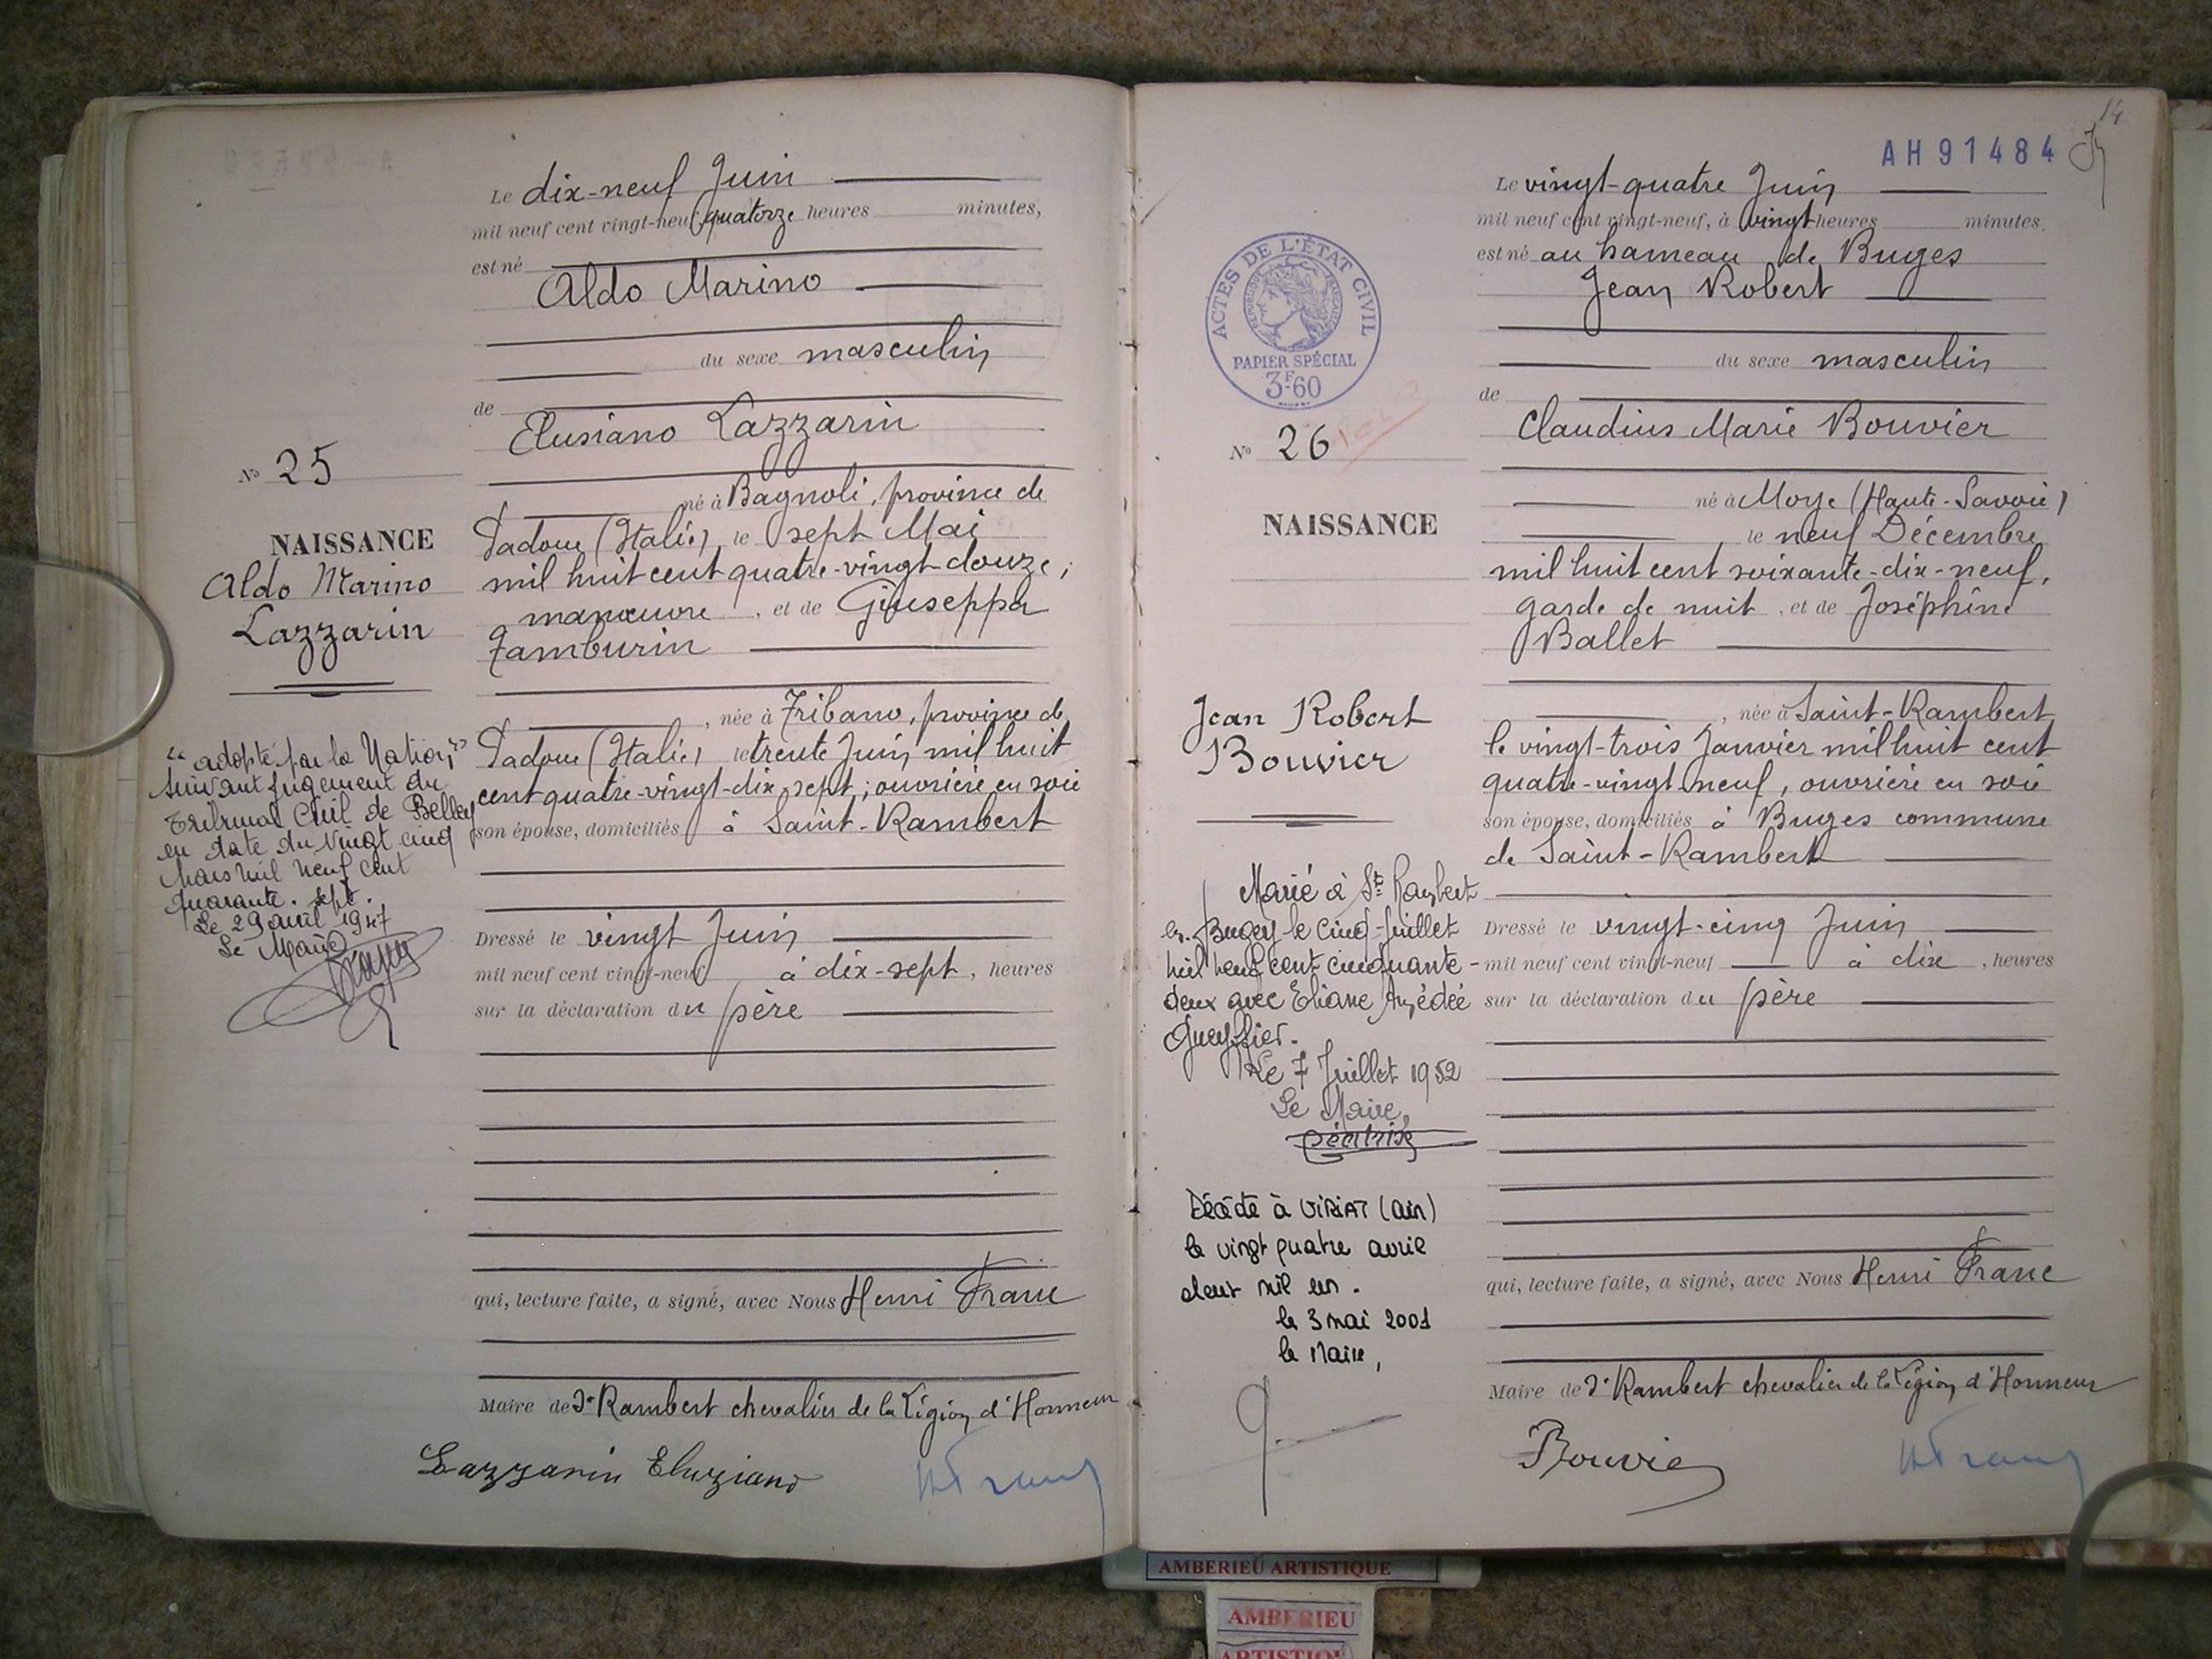 Le dix-neuf Juin
mil neuf cent vingt-neuf quatorze heures minutes,
est né
Aldo Marino
du sexe masculin
de
Elusiano Lazzarin
né à Bagnoli, province de
Padoue (Italie) le sept Mai
mil huit cent quatre-vingt-douze,
manœuvre, et de Giuseppa
Tamburin
, née à Tribano, province de
Padoue (Italie) le trente Juin mil huit
cent quatre-vingt-dix sept; ouvrière en soie
son épouse, domiciliés à Saint-Rambert
Dressé le vingt Juin
mil neuf cent vingt-neuf à dix-sept, heures
sur la déclaration du père
qui, lecture faite, a signé, avec Nous Henri Franc
Maire de St Rambert chevalier de la Légion d'Honneur
Lazzarin Eluziano
HFranc
No 25
NAISSANCE
Aldo Marino
Lazzarin
"adopté par la Nation"
suivant jugement du
Tribunal Civil de Belley
en date du vingt cinq
Mars mil neuf cent
quarante. sept.
Le 29 avril 1947
Le Maire
AH91484
14
Le vingt-quatre Juin
mil neuf cent vingt-neuf, à vingt heures minutes.
est né au hameau de Buges
Jean Robert
du sexe masculin
de
Claudius Marie Bouvier
né à Moye (Haute-Savoie)
le neuf Décembre
mil huit cent soixante-dix-neuf,
garde de nuit, et de Joséphine
Ballet
, née à Saint-Rambert
le vingt-trois Janvier mil huit cent
quatre-vingt neuf, ouvrière en soie
son épouse, domiciliés à Buges commune
de Saint-Rambert
Dressé le vingt-cinq Juin
mil neuf cent vingt-neuf à dix, heures
sur la déclaration du père
qui, lecture faite, a signé, avec Nous Henri Franc
Maire de St Rambert chevalier de la Légion d'Honneur
Bouvier
HFranc
ACTES DE L'ÉTAT CIVIL
RÉPUBLIQUE FRANÇAISE
PAPIER SPÉCIAL
3F60
No 26
NAISSANCE
Jean Robert
Bouvier
Marié à St Rambert
en Bugey le cinq Juillet
mil neuf cent cinquante-
deux avec Eliane Amédée
Gueyffier.
Le 7 Juillet 1952
Le Maire,
Décédé à VIRIAT (Ain)
le vingt quatre avril
deux mil un.
le 3 mai 2001
le Maire,
AMBERIEU ARTISTIQUE
AMBERIEU
ARTISTIQUE